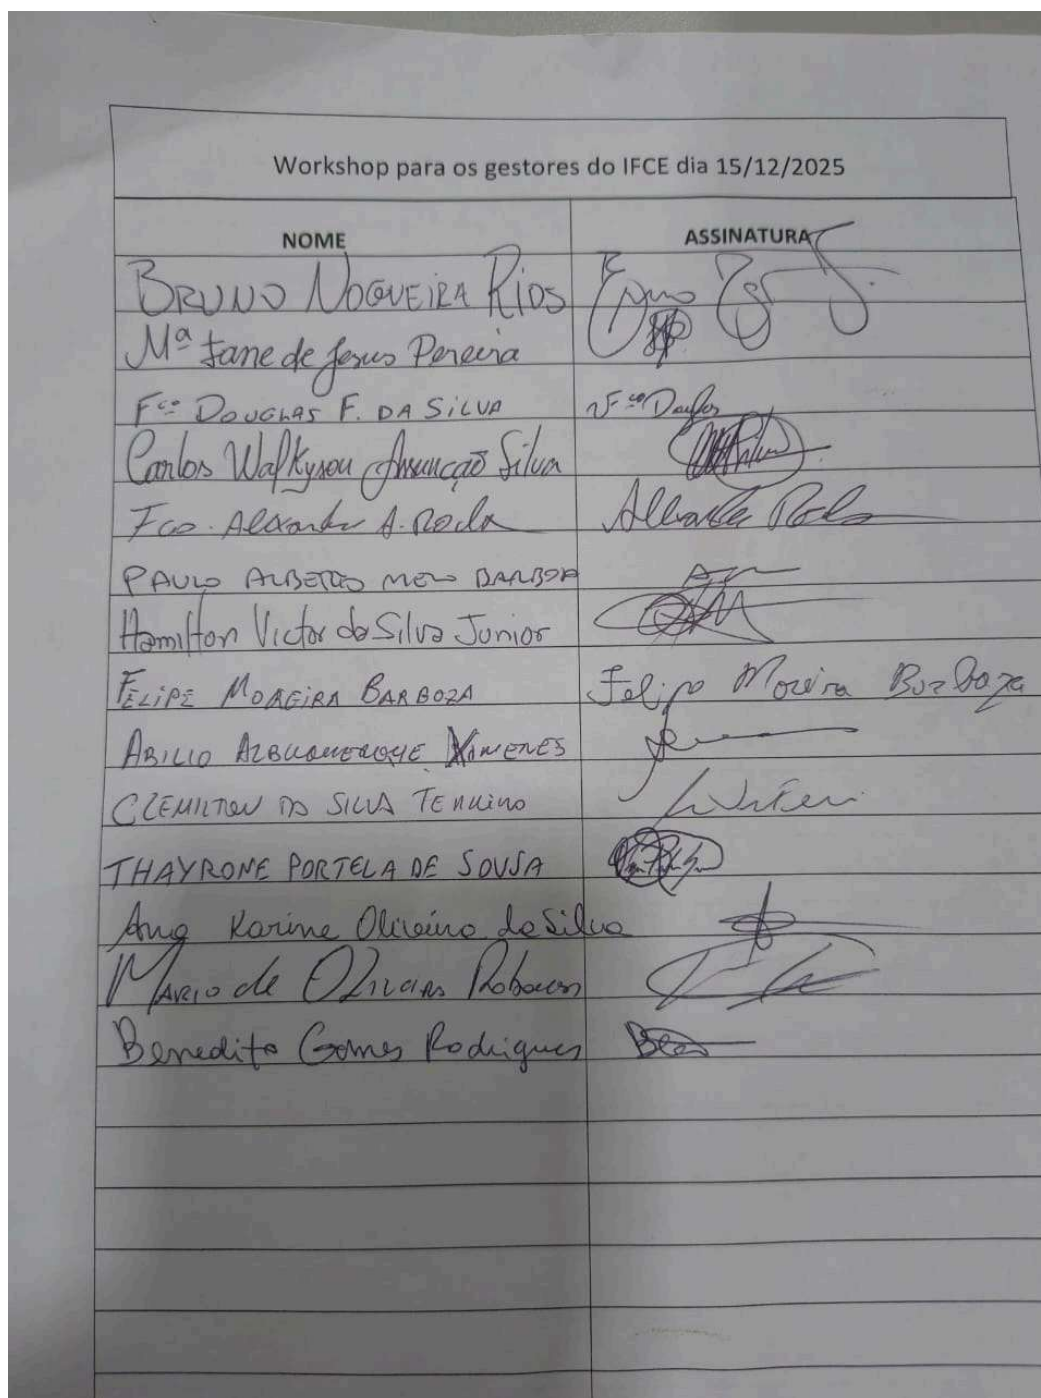 Workshop para os gestores do IFCE dia 15/12/2025
NOME ASSINATURA
BRUNO NOGUEIRA RIOS Bruno
Mª Jane de Jesus Pereira
Fco DOUGLAS F. DA SILVA Fco Douglas
Carlos Walkyson Assunção Silva
Fco. Alexandre A. Rocha
PAULO ALBERTO MELO BARBOSA
Hamilton Victor da Silva Junior
FELIPE MOREIRA BARBOZA Felipe Moreira Barboza
ABILIO ALBUQUERQUE XIMENES
CLEMILTON DA SILVA
THAYRONE PORTELA DE SOUSA
Ana Karine Oliveira da Silva
MARIO de
Benedito Gomes Rodrigues